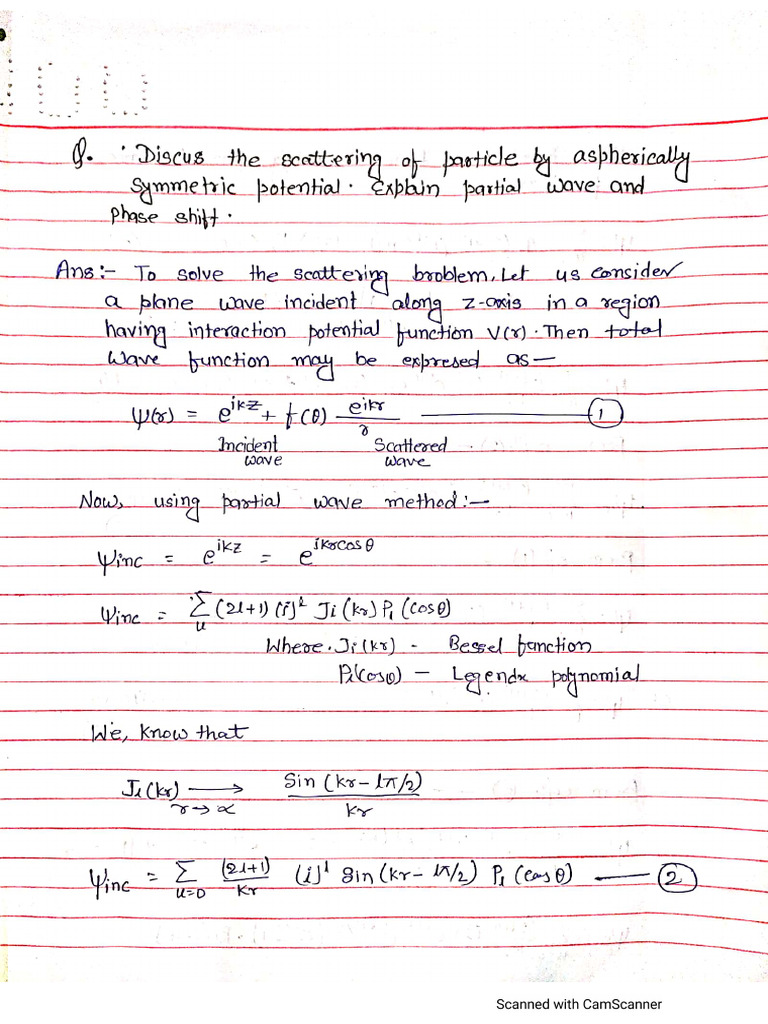 Q. : Discus the scattering of particle by aspherically
symmetric potential. Explain partial wave and
phase shift.
Ans:- To solve the scattering broblem, Let us consider
a plane wave incident along z-axis in a region
having interaction potential function V(r). Then total
wave function may be expresed as—
ψ(r) = e^{ikz} + f(θ) e^{ikr}/r ——— ①
Incident wave Scattered wave
Now, using partial wave method:—
ψinc = e^{ikz} = e^{ikrcosθ}
ψinc = Σ_u (2l+1) (i)^l Ji (kr) Pl (cosθ)
Where. Ji (kr) - Bessel function
Pl(cosθ) — Legendx polynomial
We, know that
Jl (kr) ⟶_{r→α} Sin (kr-lπ/2)/kr
ψinc = Σ_{u=0} (2l+1)/kr (i)^l Sin (kr- lπ/2) Pl (cosθ) —— ②
Scanned with CamScanner